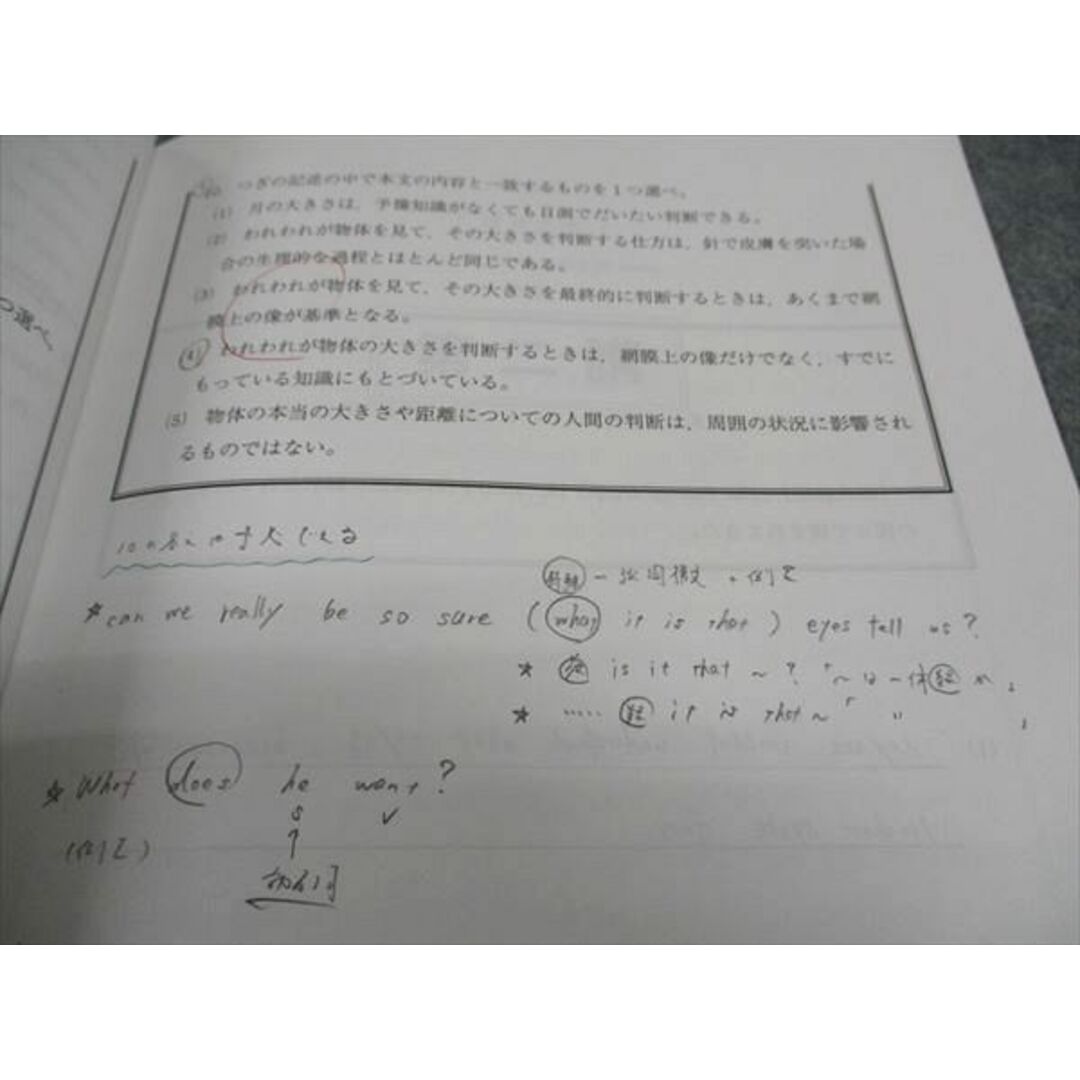 つぎの記述の中で本文の内容と一致するものを1つ選べ。
(1) 月の大きさは、予備知識がなくても目測でだいたい判断できる。
(2) われわれが物体を見て、その大きさを判断する仕方は、針で皮膚を突いた場
合の生理的な過程とほとんど同じである。
(3) われわれが物体を見て、その大きさを最終的に判断するときは、あくまで網
膜上の像が基準となる。
(4) われわれが物体の大きさを判断するときは、網膜上の像だけでなく、すでに
もっている知識にもとづいている。
(5) 物体の本当の大きさや距離についての人間の判断は、周囲の状況に影響され
るものではない。
つ選べ。
★ can we really be so sure (what it is that) eyes tell us?
★ is it that ~? 「~は一体 か」
★ ..... it is that ~ 「 〃 」
★ What does he want?
S V
↑